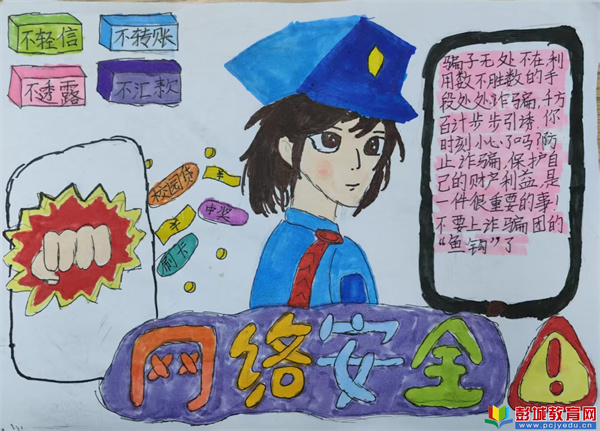 不轻信
不转账
不透露
不汇款
校园贷
中奖
刷卡
骗子无处不在,利
用数不胜数的手
段处处诈骗,千方
百计步步引诱,你
时刻小心了吗?防
止诈骗,保护自
己的财产利益,是
一件很重要的事!
不要上诈骗团的
“鱼钩”了
网络安全
!
彭城教育网
www.pcjyedu.cn